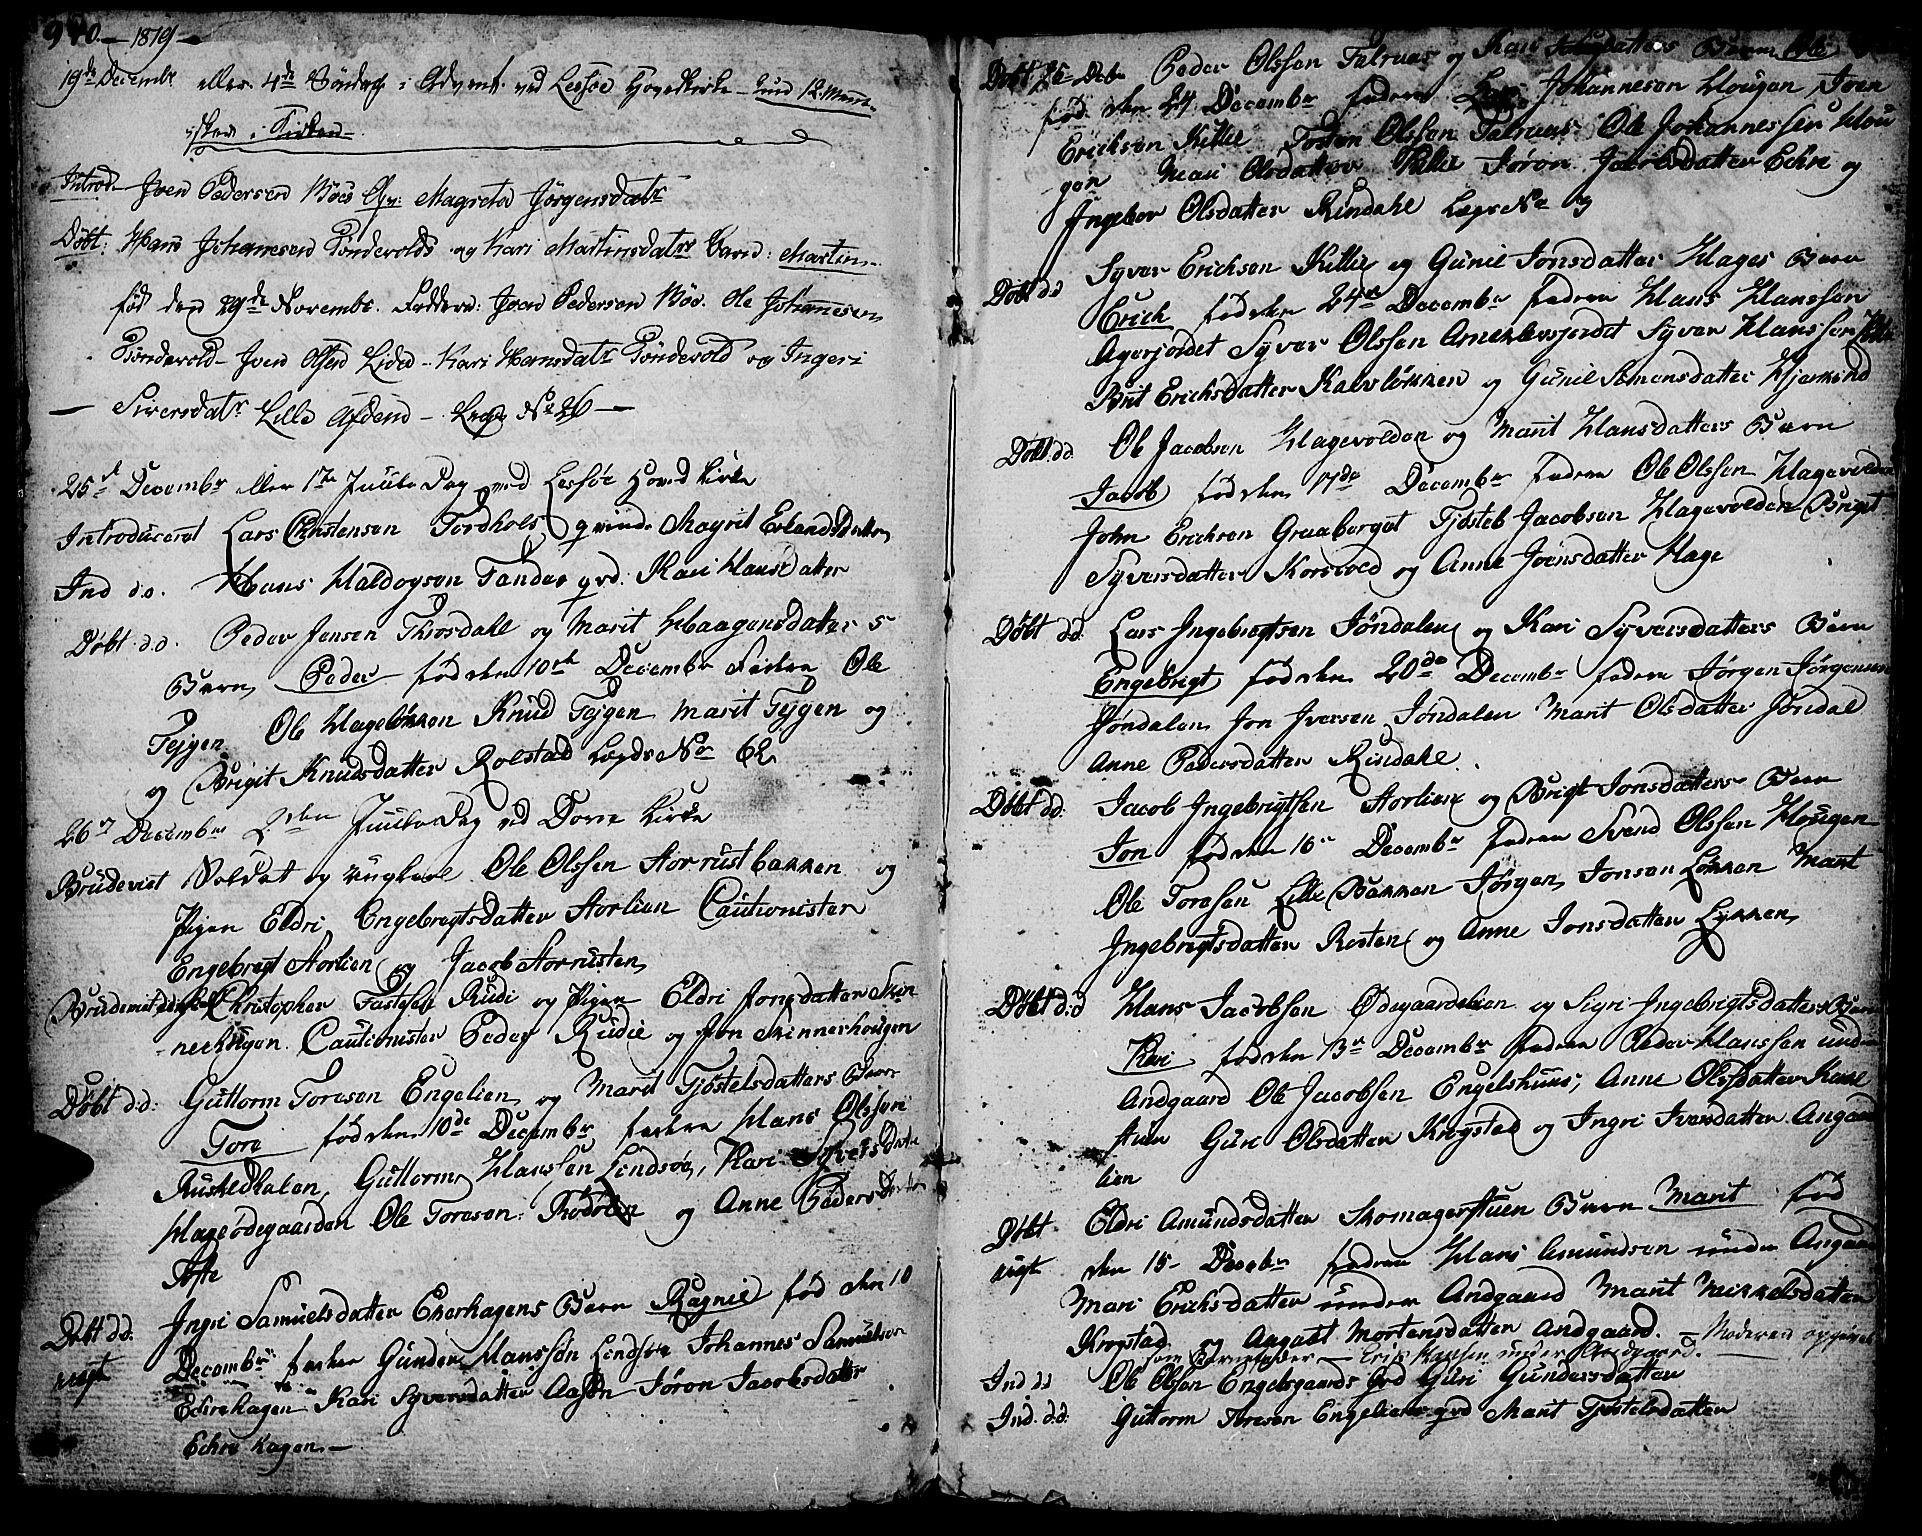 940. — 1819 —
19de Decembr eller 4de Søndag i Advent ved Lessøe Hovedkirke — kund 12 Menne-
sker i Kirken —
Introd. Joen Pedersens Bøes Qv: Magrete Jørgensdatr
Døbt: Hans Johannesen Tondevolds og Kari Martinsdatrs Barn: Martin
fød den 29de Novembr. Faddere: Joen Pedersen Bøe. Ole Johannesen
Tøndevold — Joen Olsen Lided — Kari Hansdatr Tøndevold og Ingeri
— Siversdatr Lille — Legs No 26 —
25de Decembr eller 1te Juule Dag ved Lessøe Hoved Kirke
Introduceret Lars Christensen Tordhols qvinde Magrit Erlandsdatter
Ind d.o. Hans Haldogsen Tande qvd: Kari Hansdatter
Døbt d.d. Peder Jensen Throsdahl og Marit Haagensdatters
Barn Peder fød den 10de Decembr Faddere Ole
Tejgen Ole Hageløkken Knud Tejgen Marit Tejgen og
og Brigit Knudsdatter Rolstad Legds No 62
26de Decembr 2den Juule Dag ved Dovre Kirke
Brudeviet Soldat og ungkarl Ole Olssen Storrustbakken og
Pigen Eldri Engebregtsdatter Storlien Cautionister
Engebregt Storlien og Jacob Storrusten
Brudeviet Christopher Rudi og Pigen Eldri Jonsdatter Skin
nerhougen. Cautionister Peder Rudie og Jon Skinnerhougen
Døbt d:d: Guttorm Toresen Engelien og Marit Tjøstelsdatters Barn
Tore fød den 10de Decembr faddere Hans Olssen
Rusledhalen, Guttorm Hanssen Lindsøe, Kari
Hageødegaarden Ole Toresen og Anne Pedersdatter
Tofte
Døbt d.d. Ingri Samuelsdatter Ekrehagens Barn Ragnil fød den 10
uægt Decembr fadder Gunder Hanssøn Lindsøe Johannes Samuelsen
Eckrehagen Kari Syversdatter Jøron Jacobsdatter
Eckre hagen —
Døbt 26 Debr Peder Olssen Talruas og Kari Barn Ole
fød den 24 Decembr faddere Johannesen Hougen Joen
Ericksen Killie Tosten Olssen Talruas Ole Johannessen Hou
gen Mari Olsdatter Killie Jøron Jacobsdatter Eckre og
Ingebor Olsdatter Rindahl Legs No
Døbt dd Syver Ericksen Killie og Gunil Jonsdatter Hages Barn
Erich fød den 24de Decembr fadderne Hans Hanssen
Agerjordet Syver Olssen Syver Hanssen
Brit Ericksdatter Kalvløkken og Gunil Simensdatter Hjerkind
Døbt dd. Ole Jacobsen Hagevolden og Marit Hansdatters Barn
Jacob fød den 17de Decembr faddere Ole Olssen Hagevolden
John Ericksen Graaberget Jacobsen Hagevolden Brigit
Syversdatter Korsvold og Anne Joensdatter Hage
Døbt dd. Lars Ingebregtsen Jøndalen og Kari Syversdatters Barn
Engebrigt fød den 20de Decembr fadere Jørgen Jørgensen
Jondalen Jon Iversen Jøndalen Marit Olsdatter Jøndal
Anne Pedersdatter Rindahl.
Døbt dd. Jacob Ingebrigtsen Storlien og Brigt Jonsdatters Barn
Jon fød den 16 Decembr fadere Svend Olssen Hougen
Ole Toresen Lille Bakken Jørgen Jonsen Løkken Marit
Ingebrigtsdatter Rosten og Anne Jonsdatter Løkken
Døbt d:d Hans Jacobsen Ødegaardslien og Sigri Ingebrigtsdatters Barn
Kari fød den 13de Decembr faddere Peder Hanssen under
Andgaard Ole Jacobsen Engelshuus, Anne Olsdatter
stuen Guri Olsdatter Krogstad og Ingri Iversdatter Angaard
lien
Døbt Eldri Amundsdatter Skomagerstuen Barn Marit fød
uægt den 15 Decebr faderne Hans Amundsen under Angaard
Mari Ericksdatter under Andgaard Marit Mikkelsdatter
Krogstad og Mortensdatter Andgaard. — Moderen opgivet
som Barnefader — Erik Hansen under Andgaard.
Ind dd Ole Olsen Engelsgaards qvd Guri Gundersdatter
Ind. d.d. Guttorm Toresen Engelien qvd Marit Tjøstelsdatter